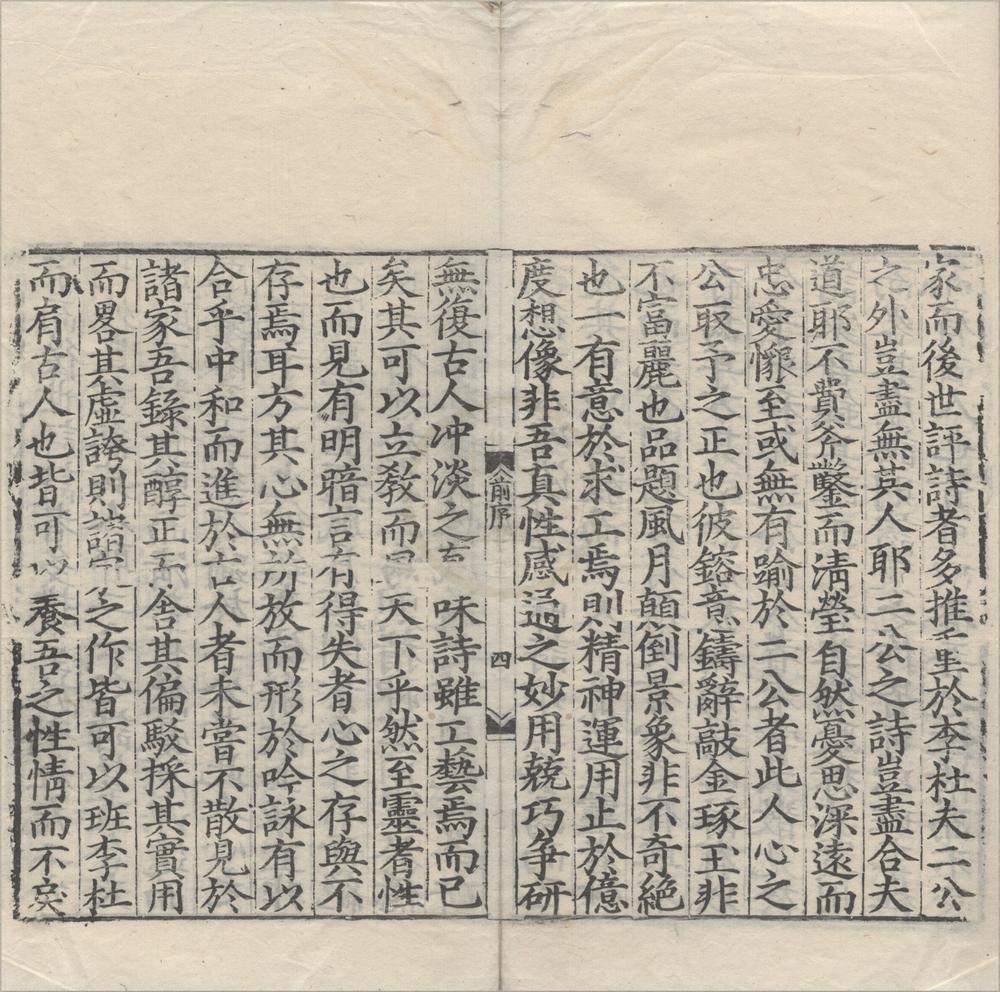 家而後世評詩者多推重於李杜夫二公
之外豈盡無其人耶二公之詩豈盡合夫
道耶不費斧鑿而清瑩自然憂思深遠而
忠愛懨至或無有踰於二公者此人心之
公取予之正也彼鎔意鑄辭敲金琢玉非
不富麗也品題風月顛倒景象非不奇絕
也一有意於求工焉則精神運用止於億
度想像非吾真性感過之妙用兢巧爭研
前序
四
無復古人冲淡之味詩雖工藝焉而已
矣其可以立教而天下乎然至靈者性
也而見有明暗言有得失者心之存與不
存焉耳方其心無所放而形於吟詠有以
合乎中和而進於古人者未嘗不散見於
諸家吾錄其醇正而舍其偏駁採其實用
而畧其虛誇則諸家之作皆可以班李杜
而肩古人也皆可以養吾之性情而不戾